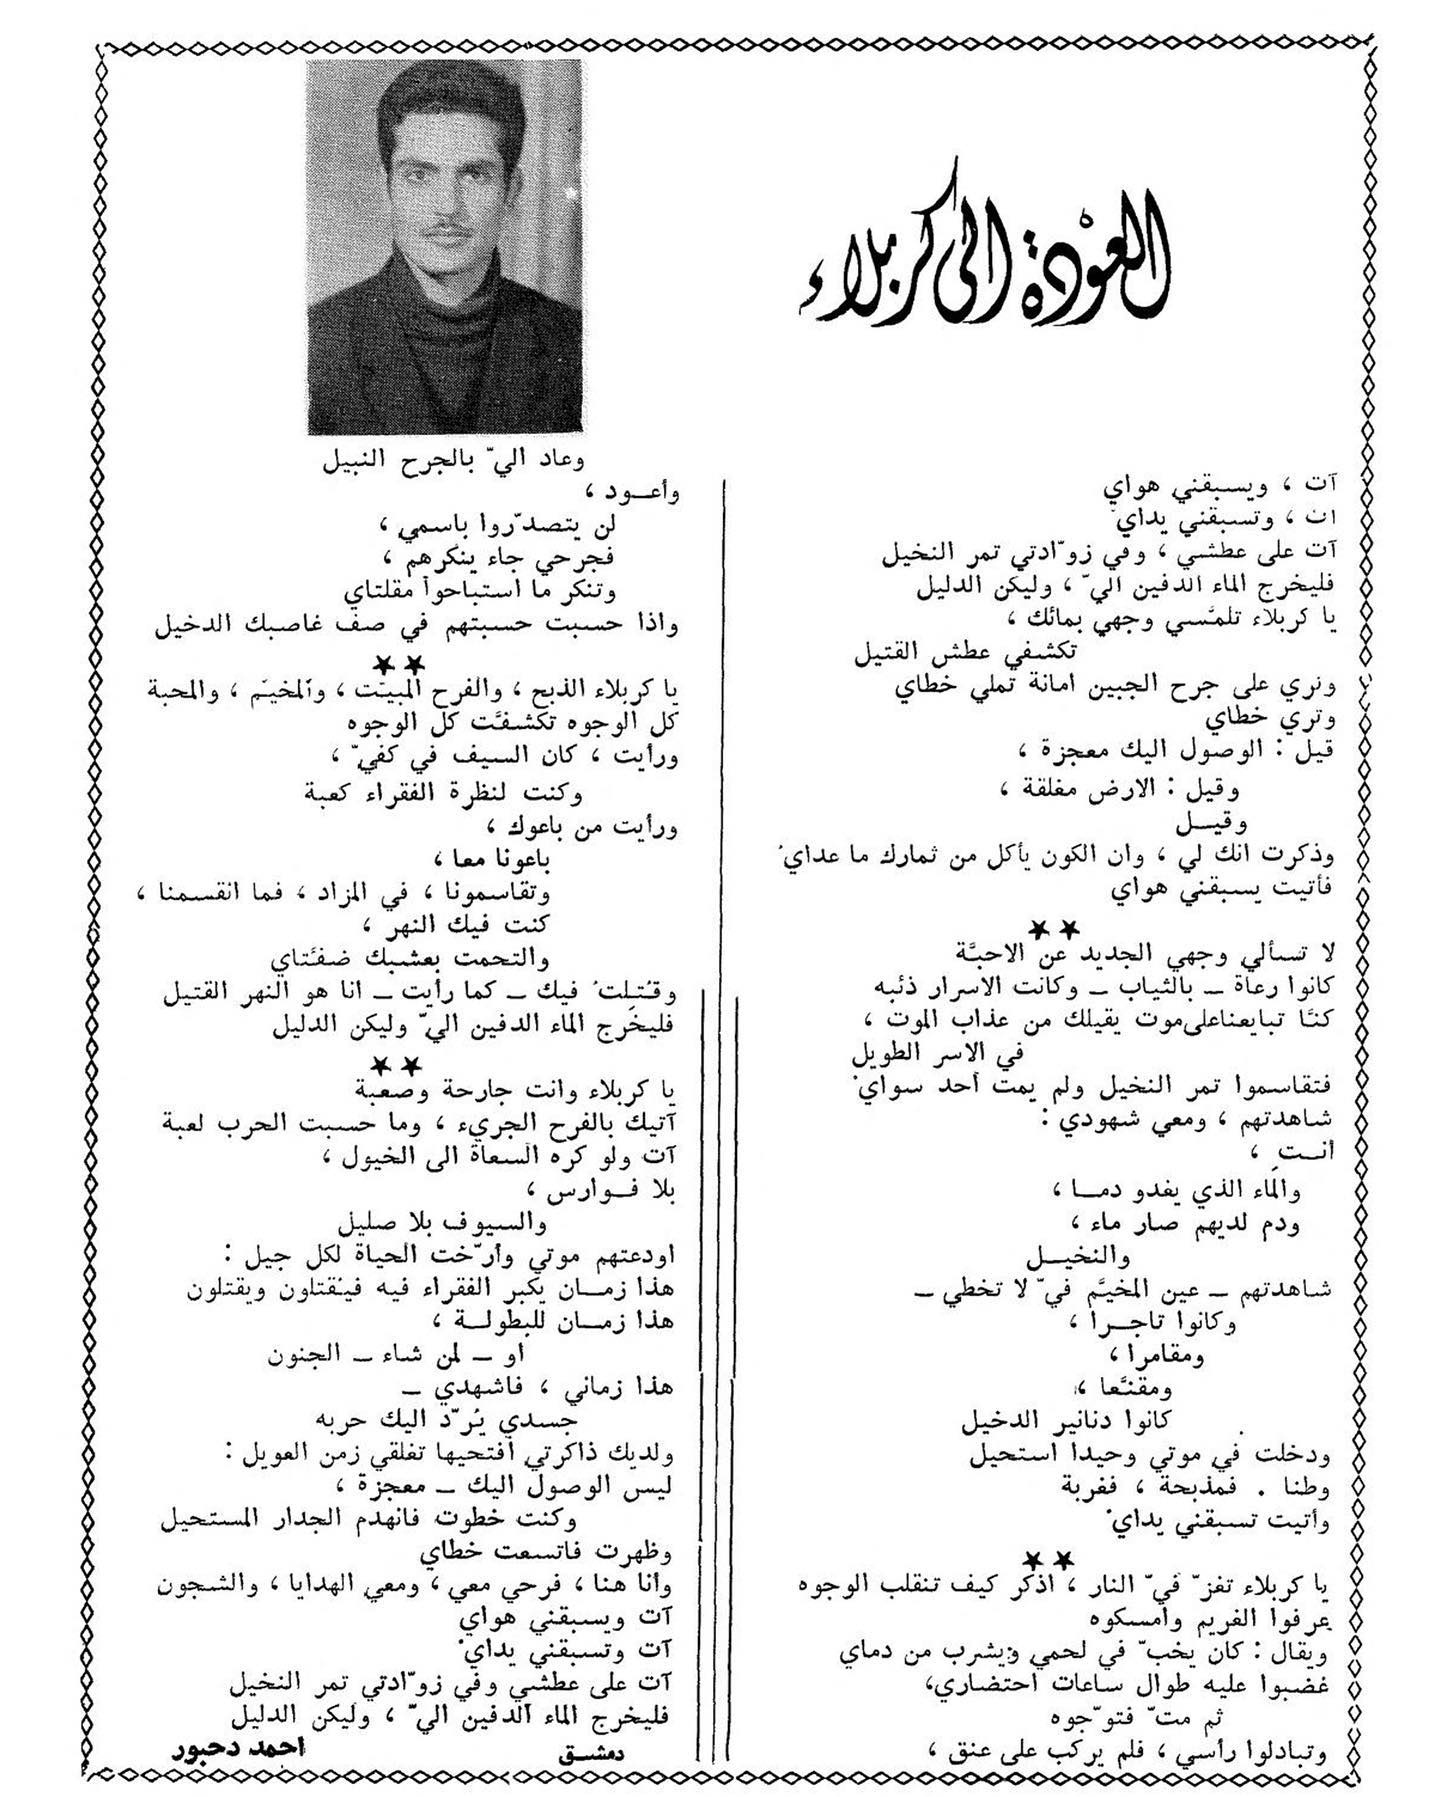 العودة الى كربلاء
آت ، ويسبقني هواي
آت ، وتسبقني يداي
آت على عطشي ، وفي زوّادتي تمر النخيل
فليخرج الماء الدفين اليّ ، وليكن الدليل
يا كربلاء تلمَّسي وجهي بمائك ،
تكشفي عطش القتيل
ونري على جرح الجبين امانة تملي خطاي
وتري خطاي
قيل : الوصول اليك معجزة ،
وقيل : الارض مغلقة ،
وقيـل
وذكرت انك لي ، وان الكون يأكل من ثمارك ما عدايْ
فأتيت يسبقني هواي
★ ★
لا تسألي وجهي الجديد عن الاحبَّة
كانوا رعاة ــ بالثياب ــ وكانت الاسرار ذئبه
كنَّا تبايعنا على موت يقيلك من عذاب الموت ،
في الاسر الطويل
فتقاسموا تمر النخيل ولم يمت أحد سوايْ
شاهدتهم ، ومعي شهودي :
أنـتِ ،
والماء الذي يغدو دمـا ،
ودم لديهم صار ماء ،
والنخيـل
شاهدتهم ــ عين المخيَّم فيّ لا تخطي ــ
وكانوا تاجـرا ،
ومقامرا ،
ومقنَّعا ،
كانوا دنانير الدخيل
ودخلت في موتي وحيدا استحيل
وطنا . فمذبحة ، فغربة
وأتيت تسبقني يدايْ
★ ★
يا كربلاء تفزّ فيّ النار ، أذكر كيف تنقلب الوجوه
عرفوا الغريم وأمسكوه
ويقال : كان يخبّ في لحمي ويشرب من دماي
غضبوا عليه طوال ساعات احتضاري،
ثم متّ فتوّجوه
وتبادلوا رأسي ، فلم يركب على عنق ،
وعاد اليّ بالجرح النبيل
وأعـود ،
لن يتصدّروا باسمي ،
فجرحي جاء ينكرهم ،
وتنكر ما استباحوا مقلتاي
واذا حسبت حسبتهم في صف غاصبك الدخيل
★ ★
يا كربلاء الذبح ، والفرح المبيَّت ، والمخيَّم ، والمحبة
كل الوجوه تكشفَّت كل الوجوه
ورأيت ، كان السيف في كفيّ ،
وكنت لنظرة الفقراء كعبة
ورأيت من باعوك ،
باعونا معا ،
وتقاسمونا ، في المزاد ، فما انقسمنا ،
كنت فيك النهر ،
والتحمت بعشبك ضفَّتاي
وقُتِلتُ فيك ــ كما رأيت ــ انا هو النهر القتيل
فليخرج الماء الدفين اليّ وليكن الدليل
★ ★
يا كربلاء وانت جارحة وصعبة
آتيك بالفرح الجريء ، وما حسبت الحرب لعبة
آت ولو كره السعاة الى الخيول ،
بلا فـوارس ،
والسيوف بلا صليل
اودعتهم موتي وأرّخت الحياة لكل جيل :
هذا زمـان يكبر الفقراء فيه فيُقتلون ويقتلون
هذا زمـان للبطولـة ،
او ــ لمن شاء ــ الجنون
هذا زماني ، فاشهدي ــ
جسدي يُردّ اليك حربه
ولديك ذاكرتي افتحيها تغلقي زمن العويل :
ليس الوصول اليك ــ معجزة ،
وكنت خطوت فانهدم الجدار المستحيل
وظهرت فاتسعت خطاي
وأنا هنا ، فرحي معي ، ومعي الهدايا ، والشجون
آت ويسبقني هواي
آت وتسبقني يدايْ
آت على عطشي وفي زوّادتي تمر النخيل
فليخرج الماء الدفين اليّ ، وليكن الدليل
دمشـق
احمد دحبور